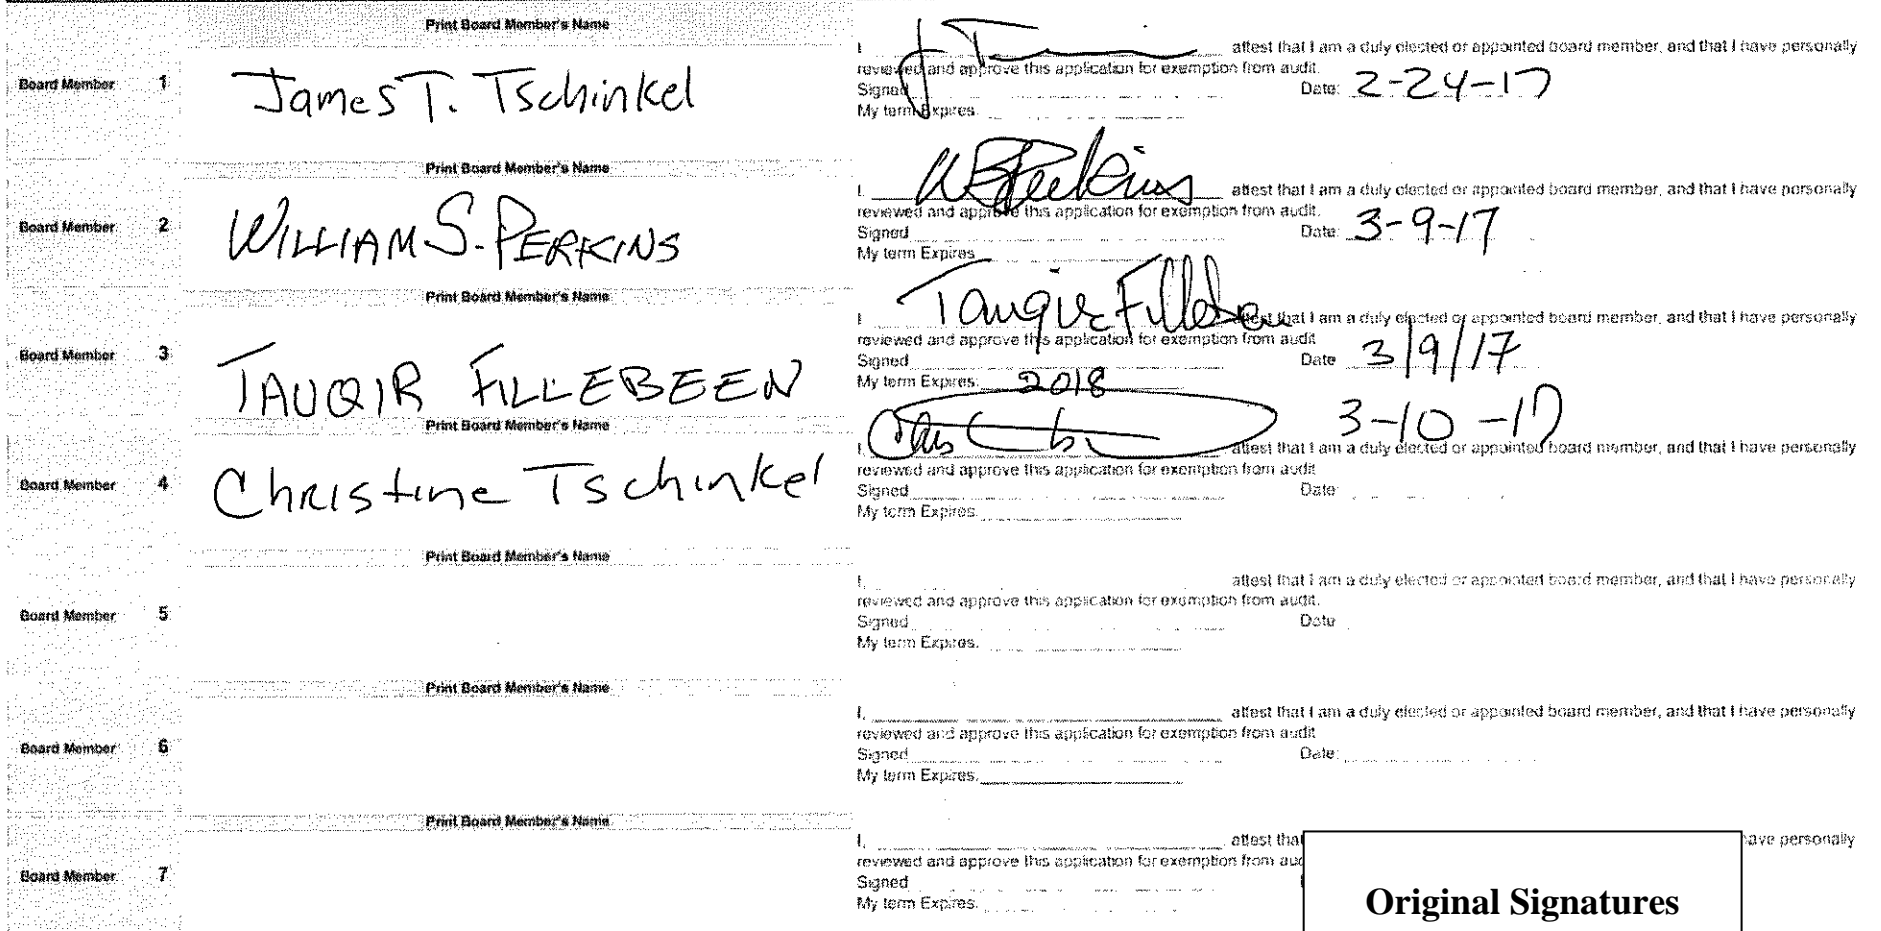 Print Board Member's Name
Board Member 1
James T. Tschinkel
I attest that I am a duly elected or appointed board member, and that I have personally
reviewed and approve this application for exemption from audit.
Signed Date: 2-24-17
My term Expires
Print Board Member's Name
Board Member 2
WILLIAM S. PERKINS
I, WSPerkins attest that I am a duly elected or appointed board member, and that I have personally
reviewed and approve this application for exemption from audit.
Signed Date: 3-9-17
My term Expires
Print Board Member's Name
Board Member 3
TAUQIR FILLEBEEN
I Tauqir Fillebeen attest that I am a duly elected or appointed board member, and that I have personally
reviewed and approve this application for exemption from audit
Signed Date 3/9/17
My term Expires: 2018
Print Board Member's Name
Board Member 4
Christine Tschinkel
3-10-17
I, attest that I am a duly elected or appointed board member, and that I have personally
reviewed and approve this application for exemption from audit
Signed Date
My term Expires.
Print Board Member's Name
Board Member 5
I, attest that I am a duly elected or appointed board member, and that I have personally
reviewed and approve this application for exemption from audit.
Signed Date
My term Expires.
Print Board Member's Name
Board Member 6
I, attest that I am a duly elected or appointed board member, and that I have personally
reviewed and approve this application for exemption from audit
Signed Date:
My term Expires.
Print Board Member's Name
Board Member 7
I, attest that have personally
reviewed and approve this application for exemption from
Signed
My term Expires.
Original Signatures